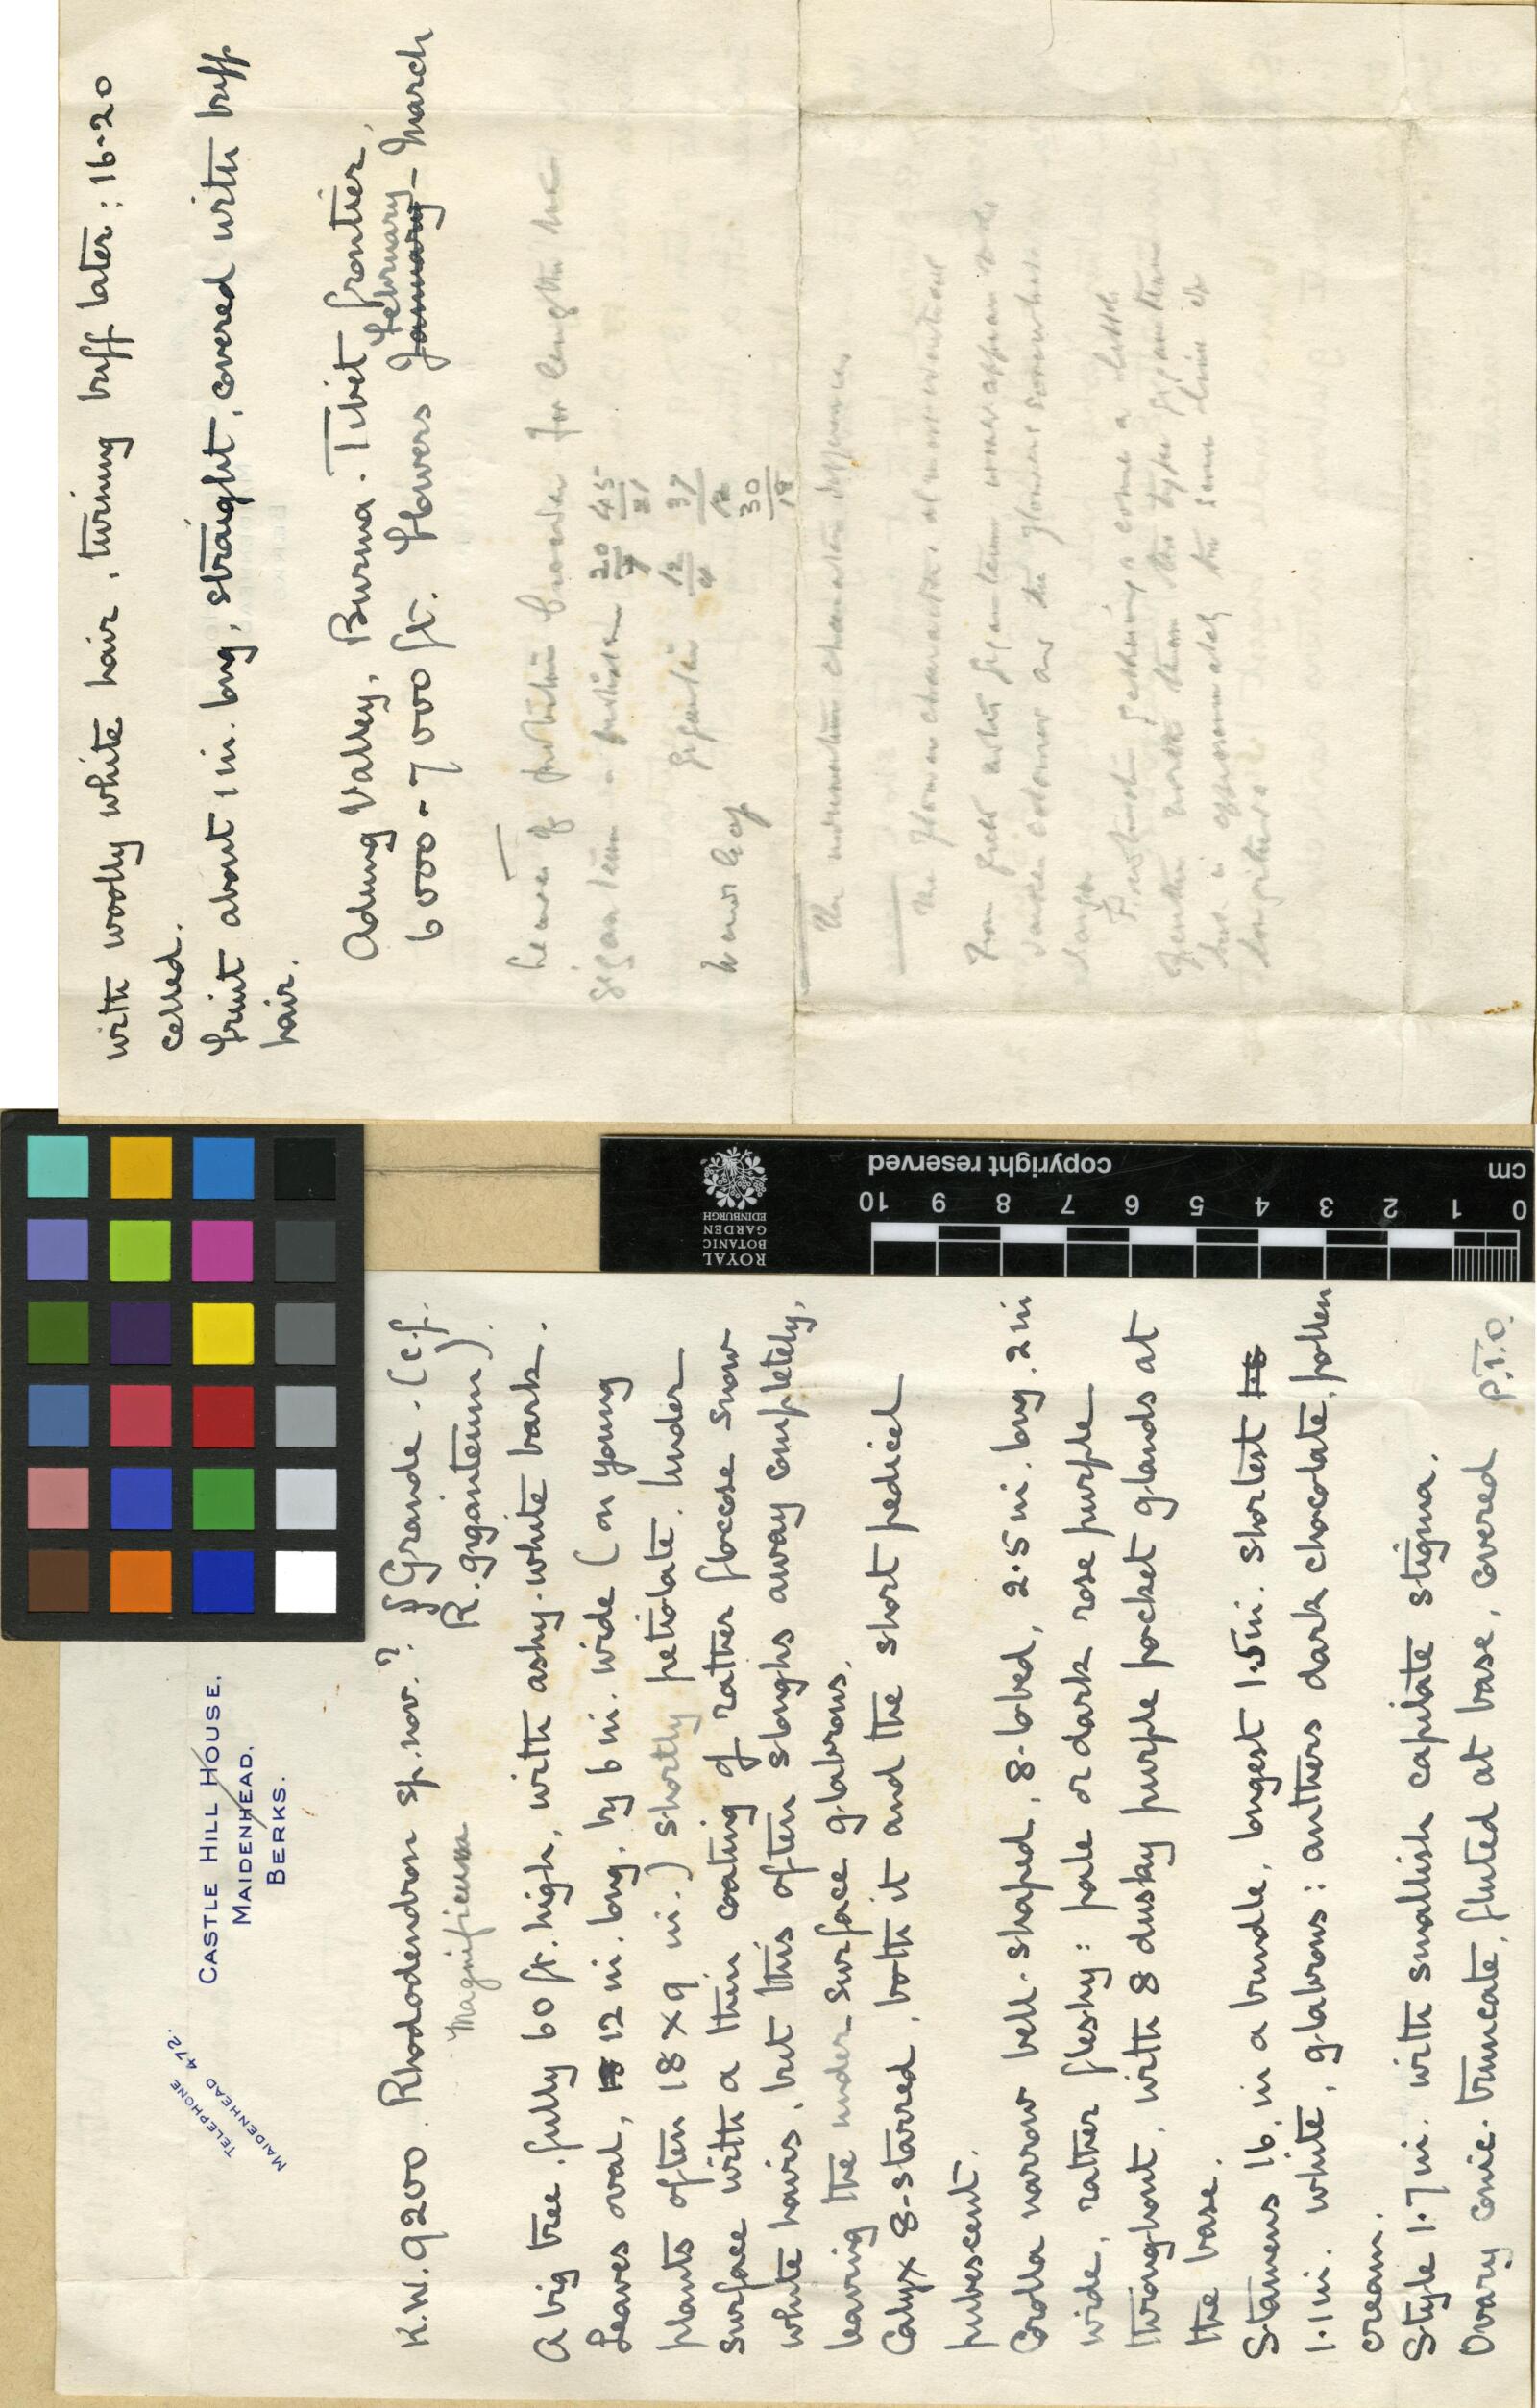 TELEPHONE
MAIDENHEAD 472.
CASTLE HILL HOUSE.
MAIDENHEAD.
BERKS.
K.W. 9200. Rhododendron sp. nov.? § Grande. (c.f.
R. giganteum).
Magnificum
A big tree fully 60 ft. high, with ashy-white bark.
Leaves oval, 12 in. long, by 6 in. wide (on young
plants often 18 x 9 in.) shortly petiolate. Under
surface with a thin coating of rather flocose snow
white hairs, but this often sloughs away completely,
leaving the under-surface glabrous.
Calyx 8-starred, both it and the short pedicel
pubescent.
Corolla narrow bell-shaped, 8-lobed, 2.5 in. long, 2 in
wide, rather fleshy: pale or dark rose purple
throughout, with 8 dusky purple pocket glands at
the base.
Stamens 16, in a bundle, longest 1.5 in. shortest
1.1 in. white, glabrous: anthers dark chocolate, pollen
cream.
Style 1.7 in. with smallish capitate stigma.
Ovary conic-truncate, fluted at base, covered
P.T.O.
with woolly white hair, turning buff later: 16-20
celled.
Fruit about 1 in. long, straight, covered with buff
hair.
Adung Valley, Burma-Tibet frontier,
6000-7000 ft. Flowers January February-March
Leaves of broader for length than
giganteum 20 45
7 21
giganteum 12 37
4 12
30
18
The indumentum character differences
The flower characters almost identical
from great giganteum would appear to be
darker colour and the flowers somewhat
larger
a little
than the type giganteum
but is approximately the same size of
cm
0 1 2 3 4 5 6 7 8 9 10
copyright reserved
ROYAL
BOTANIC
GARDEN
EDINBURGH